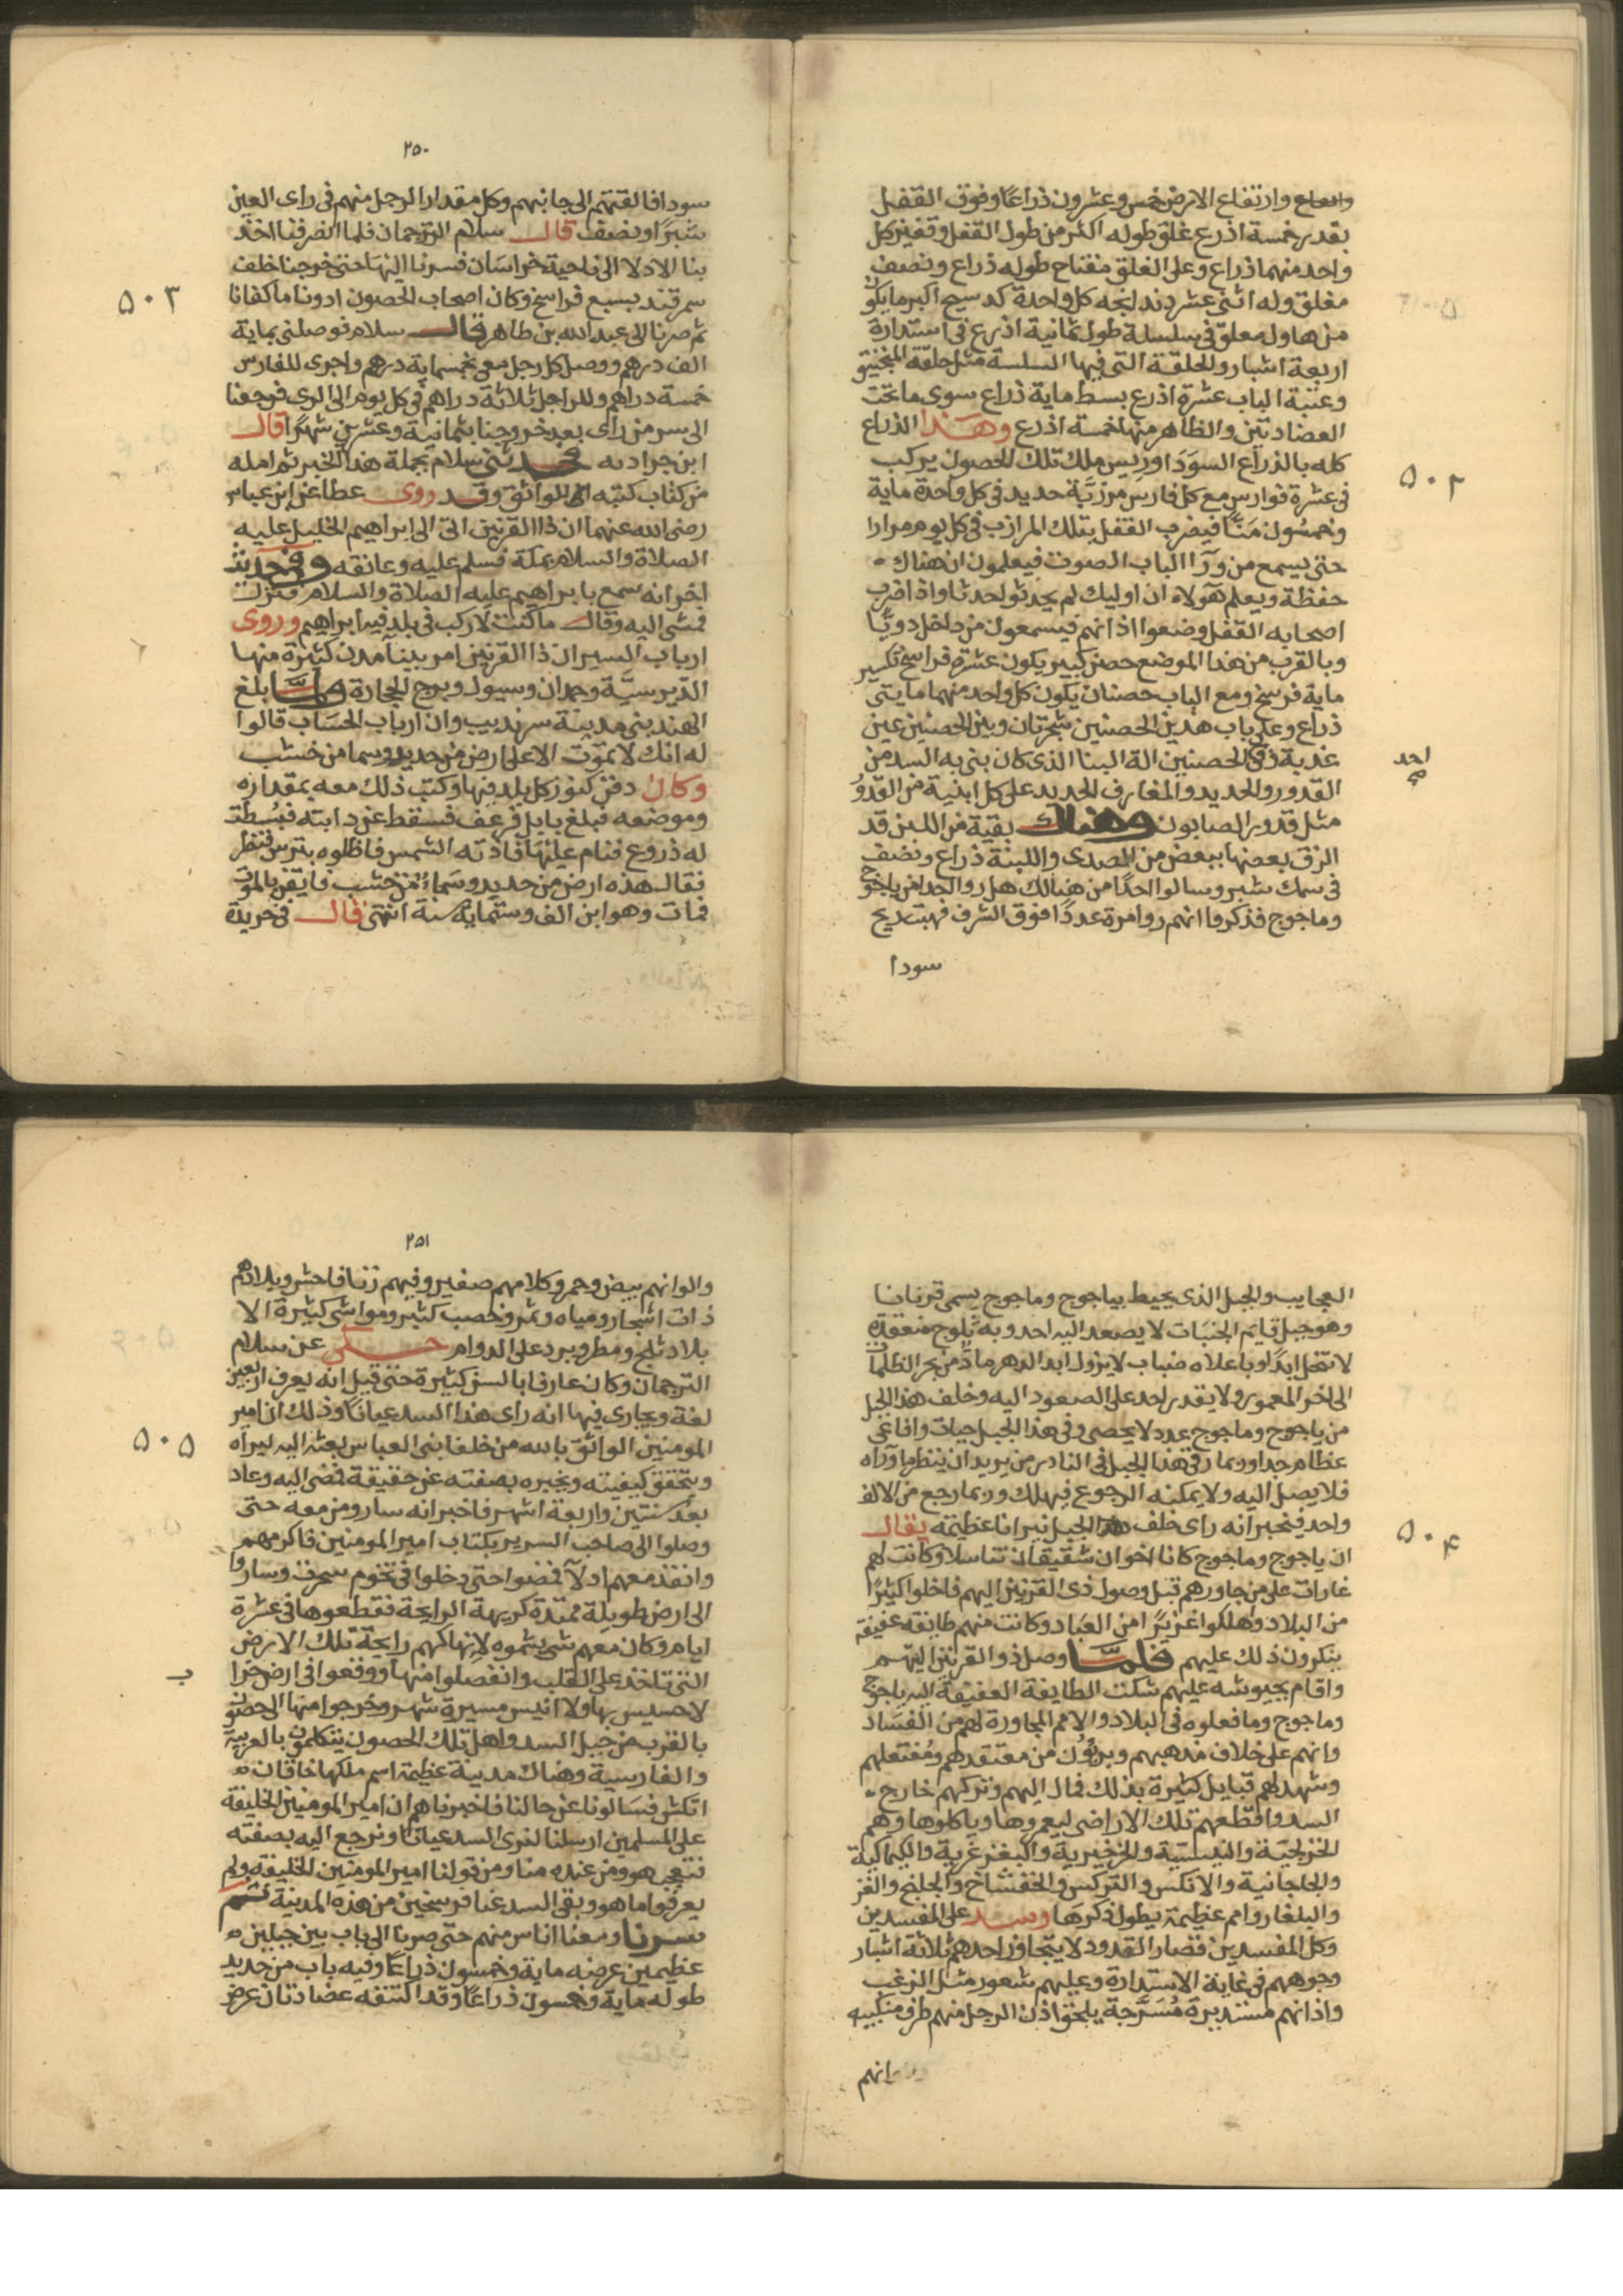 وارتفاع الارض خمس وعشرون ذراعا وفوق القفل
بقدر خمسة اذرع غلق طوله اكثر من طول القفل وقفيز كل
واحد منهما ذراع وعلى الغلق مفتاح طوله ذراع ونصف
مغلق وله اثنى عشر دندانجه كل واحدة كدستج اكبر ما يكون
من هاون معلق فى سلسلة طول ثمانية اذرع فى استدارة
اربعة اشبار والحلقة التى فيها السلسة مثل حلقة المنجنيق
وعتبة الباب عشرة اذرع بسط ماية ذراع سوى ما تحت
العضادتين والظاهر منها خمسة اذرع وهذا الذراع
كله بالذراع السودا وريس ملك تلك الحصون يركب
فى عشرة فوارس مع كل فارس مرزبة حديد فى كل واحدة ماية
وخمسون منا فيضرب القفل بتلك المرازب فى كل يوم مرارا
حتى يسمع من ورآ الباب الصوت فيعلمون ان هناك
حفظة ويعلم هولاء ان اوليك لم يحدثو لحدثا واذا ضرب
اصحابه القفل وضعوا اذانهم فيسمعون من داخل دويا
وبالقرب من هذا الموضع حصن كبير يكون عشرة فراسخ تكسير
ماية فرسخ ومع الباب حصنان يكون كل واحد منهما مايتى
ذراع وعلى باب هذين الحصنين شجرتان وبين الحصنين عين
عذبة وفى الحصنين الة البنا الذى كان بنى به السد من
القدور والحديد والمغارف الحديد على كل ابنية من القدور
احد
صح
مثل قدور الصابون وهناك بقية من اللبن قد
الزق بعضها ببعض من الصدى واللبنة ذراع ونصف
فى سمك شبر وسالوا احدا من هنالك هل راوا احدا من ياجوج
وماجوج فذكروا انهم راوا مرة عددا فوق الشرف فهبت ريح
سودا
۵۰۲
٢٥٠
سودا فالقتهم الى جانبهم وكل مقدار الرجل منهم فى راى العين
شبرا ونصف قال سلام الترجمان فلما انصرفنا اخذ
بنا الادلا الى ناحية خراسان فسرنا اليها حتى خرجنا خلف
سمرقند بسبع فراسخ وكان اصحاب الحصون زودونا ما كفانا
ثم صرنا الى عبد الله بن طاهر قال سلام فوصلنى بماية
الف درهم ووصل كل رجل معى بخمسماية درهم واجرى للفارس
خمسة دراهم وللراجل ثلاثة دراهم فى كل يوم الى الرى فرجعنا
الى سر من راى بعد خروجنا بثمانية وعشرين شهرا قال
ابن خرادبه فحدثنى سلام بجملة هذا الخبر ثم امله
من كتاب كتبه الى الواثق وقد روى عطا عن ابن عباس
رضى الله عنهما ان ذا القرنين اتى الى ابراهيم الخليل عليه
الصلاة والسلام بمكة فسلم عليه وعانقه وفى حديث
اخر انه سمع بابراهيم عليه الصلاة والسلام فنزل
فمشى اليه وقال ما كنت لاركب فى بلد فيه ابراهيم وروى
ارباب السير ان ذا القرنين امر ببنآ مدن كثيرة منها
الدبرسية وجمدان وسيول وبرج الحجارة ولما بلغ
الهند بنى مدينة سرنديب وان ارباب الحساب قالوا
له انك لا تموت الا على ارض من حديد وسما من خشب
وكان دفن كنوز كل بلد فيها وكتب ذلك معه بمقداره
وموضعه فبلغ بابل فرعف فسقط عن دابته فبسطت
له دروع فنام عليها فاذته الشمس فاظلوه بترس فنظر
فقال هذه ارض من حديد وسماء من خشب فايقن بالموت
فمات وهو ابن الف وستماية سنة انتهى قال فى خريدة
۵۰۳
العجايب والجبل الذى يحيط بياجوج وماجوج يسمى قرنانا
وهو جبل قايم الجنبات لا يصعد اليه احد وبه ثلوج منعقدة
لا تنحل ابدا وباعلاه ضباب لا يزول ابد الدهر ماد من بحر الظلمات
الى اخر المعمور ولا يقدر احد على الصعود اليه وخلف هذا الجبل
من ياجوج وماجوج عدد لا يحصى وفى هذا الجبل حيات وافاعى
عظام جدا وربما رقى هذا الجبل فى النادر من يريد ان ينظر ما ورآه
فلا يصل اليه ولا يمكنه الرجوع فيهلك وربما رجع من الالف
واحد فيخبر انه راى خلف هذا الجبل نيرانا عظيمة يقال
ان ياجوج وماجوج كانا اخوان شقيقان تناسلا وكانت لهم
غارات على من جاورهم قبل وصول ذى القرنين اليهم فاخلوا كثيرا
من البلاد واهلكوا غزيرا من العباد وكانت منهم طايفة عفيفة
ينكرون ذلك عليهم فلما وصل ذو القرنين اليهم
واقام بجيوشه عليهم شكت الطايفة العفيفة اليه ياجوج
وماجوج وما فعلوه فى البلاد والامم المجاورة لهم من الفساد
وانهم على خلاف مذهبهم وبريون من معتقدهم ومفتعلهم
وشهد لهم قبايل كثيرة بذلك فمال اليهم وتركهم خارج
السد واقطعهم تلك الاراضى ليعمروها وياكلوها وهم
الخزلجية والبستية والخرخيرية والبغزغزية والكيماكية
والجاجانية والانكس والتركس والخفشاخ والجلنج والغز
والبلغار وامم عظيمة يطول ذكرها وسد على المفسدين
وكل المفسدين قصار القدود لا يتجاوز احدهم ثلاثة اشبار
وجوههم فى غاية الاستدارة وعليهم شعور مثل الزغب
واذانهم مستديرة مسترخية يلحق اذن الرجل منهم طرف منكبيه
والوانهم
۵۰۴
٢٥١
والوانهم بيض وحمر وكلامهم صفير وفيهم زنا فاحش وبلادهم
ذات اشجار ومياه وثمر وخصب كثير ومواشى كثيرة الا
بلاد ثلج ومطر وبرد على الدوام حكى عن سلام
الترجمان وكان عارفا بالسن كثيرة حتى قيل انه يعرف اربعين
لغة ويجارى فيها انه راى هذا السد عيانا وذلك ان امير
المومنين الواثق بالله من خلفا بنى العباس بعثه اليه ليراه
ويتحقق كيفيته ويخبره بصفته عن حقيقة فمضى اليه وعاد
بعد سنتين واربعة اشهر فاخبر انه سار ومن معه حتى
وصلوا الى صاحب السرير بكتاب امير المومنين فاكرمهم
وانفذ معهم ادلآ فمضوا حتى دخلوا فى تخوم سحرف وساروا
الى ارض طويلة ممتدة كريهة الرايحة فقطعوها فى عشرة
ايام وكان معهم شى يشموه لانهاكهم رايحة تلك الارض
التى تاخذ على القلب وانفصلوا منها ووقعوا فى ارض خرا
ب
لا حسيس بها ولا انيس مسيرة شهر وخرجوا منها الى حصون
بالقرب من جبل السد واهل تلك الحصون يتكلمون بالعربية
والفارسية وهناك مدينة عظيمة اسم ملكها خاقان
اتكش فسالونا عن حالنا فاخبرناهم ان امير المومنين الخليفة
على المسلمين ارسلنا لنرى السد عيانا ونرجع اليه بصفته
فتعجب هو ومن عنده منا ومن قولنا امير المومنين الخليفة ولم
يعرفوا ما هو وبقى السد عنا فرسخين من هذه المدينة ثم
سرنا ومعنا اناس منهم حتى صرنا الى باب بين جبلين
عظيمين عرضه ماية وخمسون ذراعا وفيه باب من حديد
طوله ماية وخمسون ذراعا وقد اكتنفه عضادتان عرض
۵۰۵